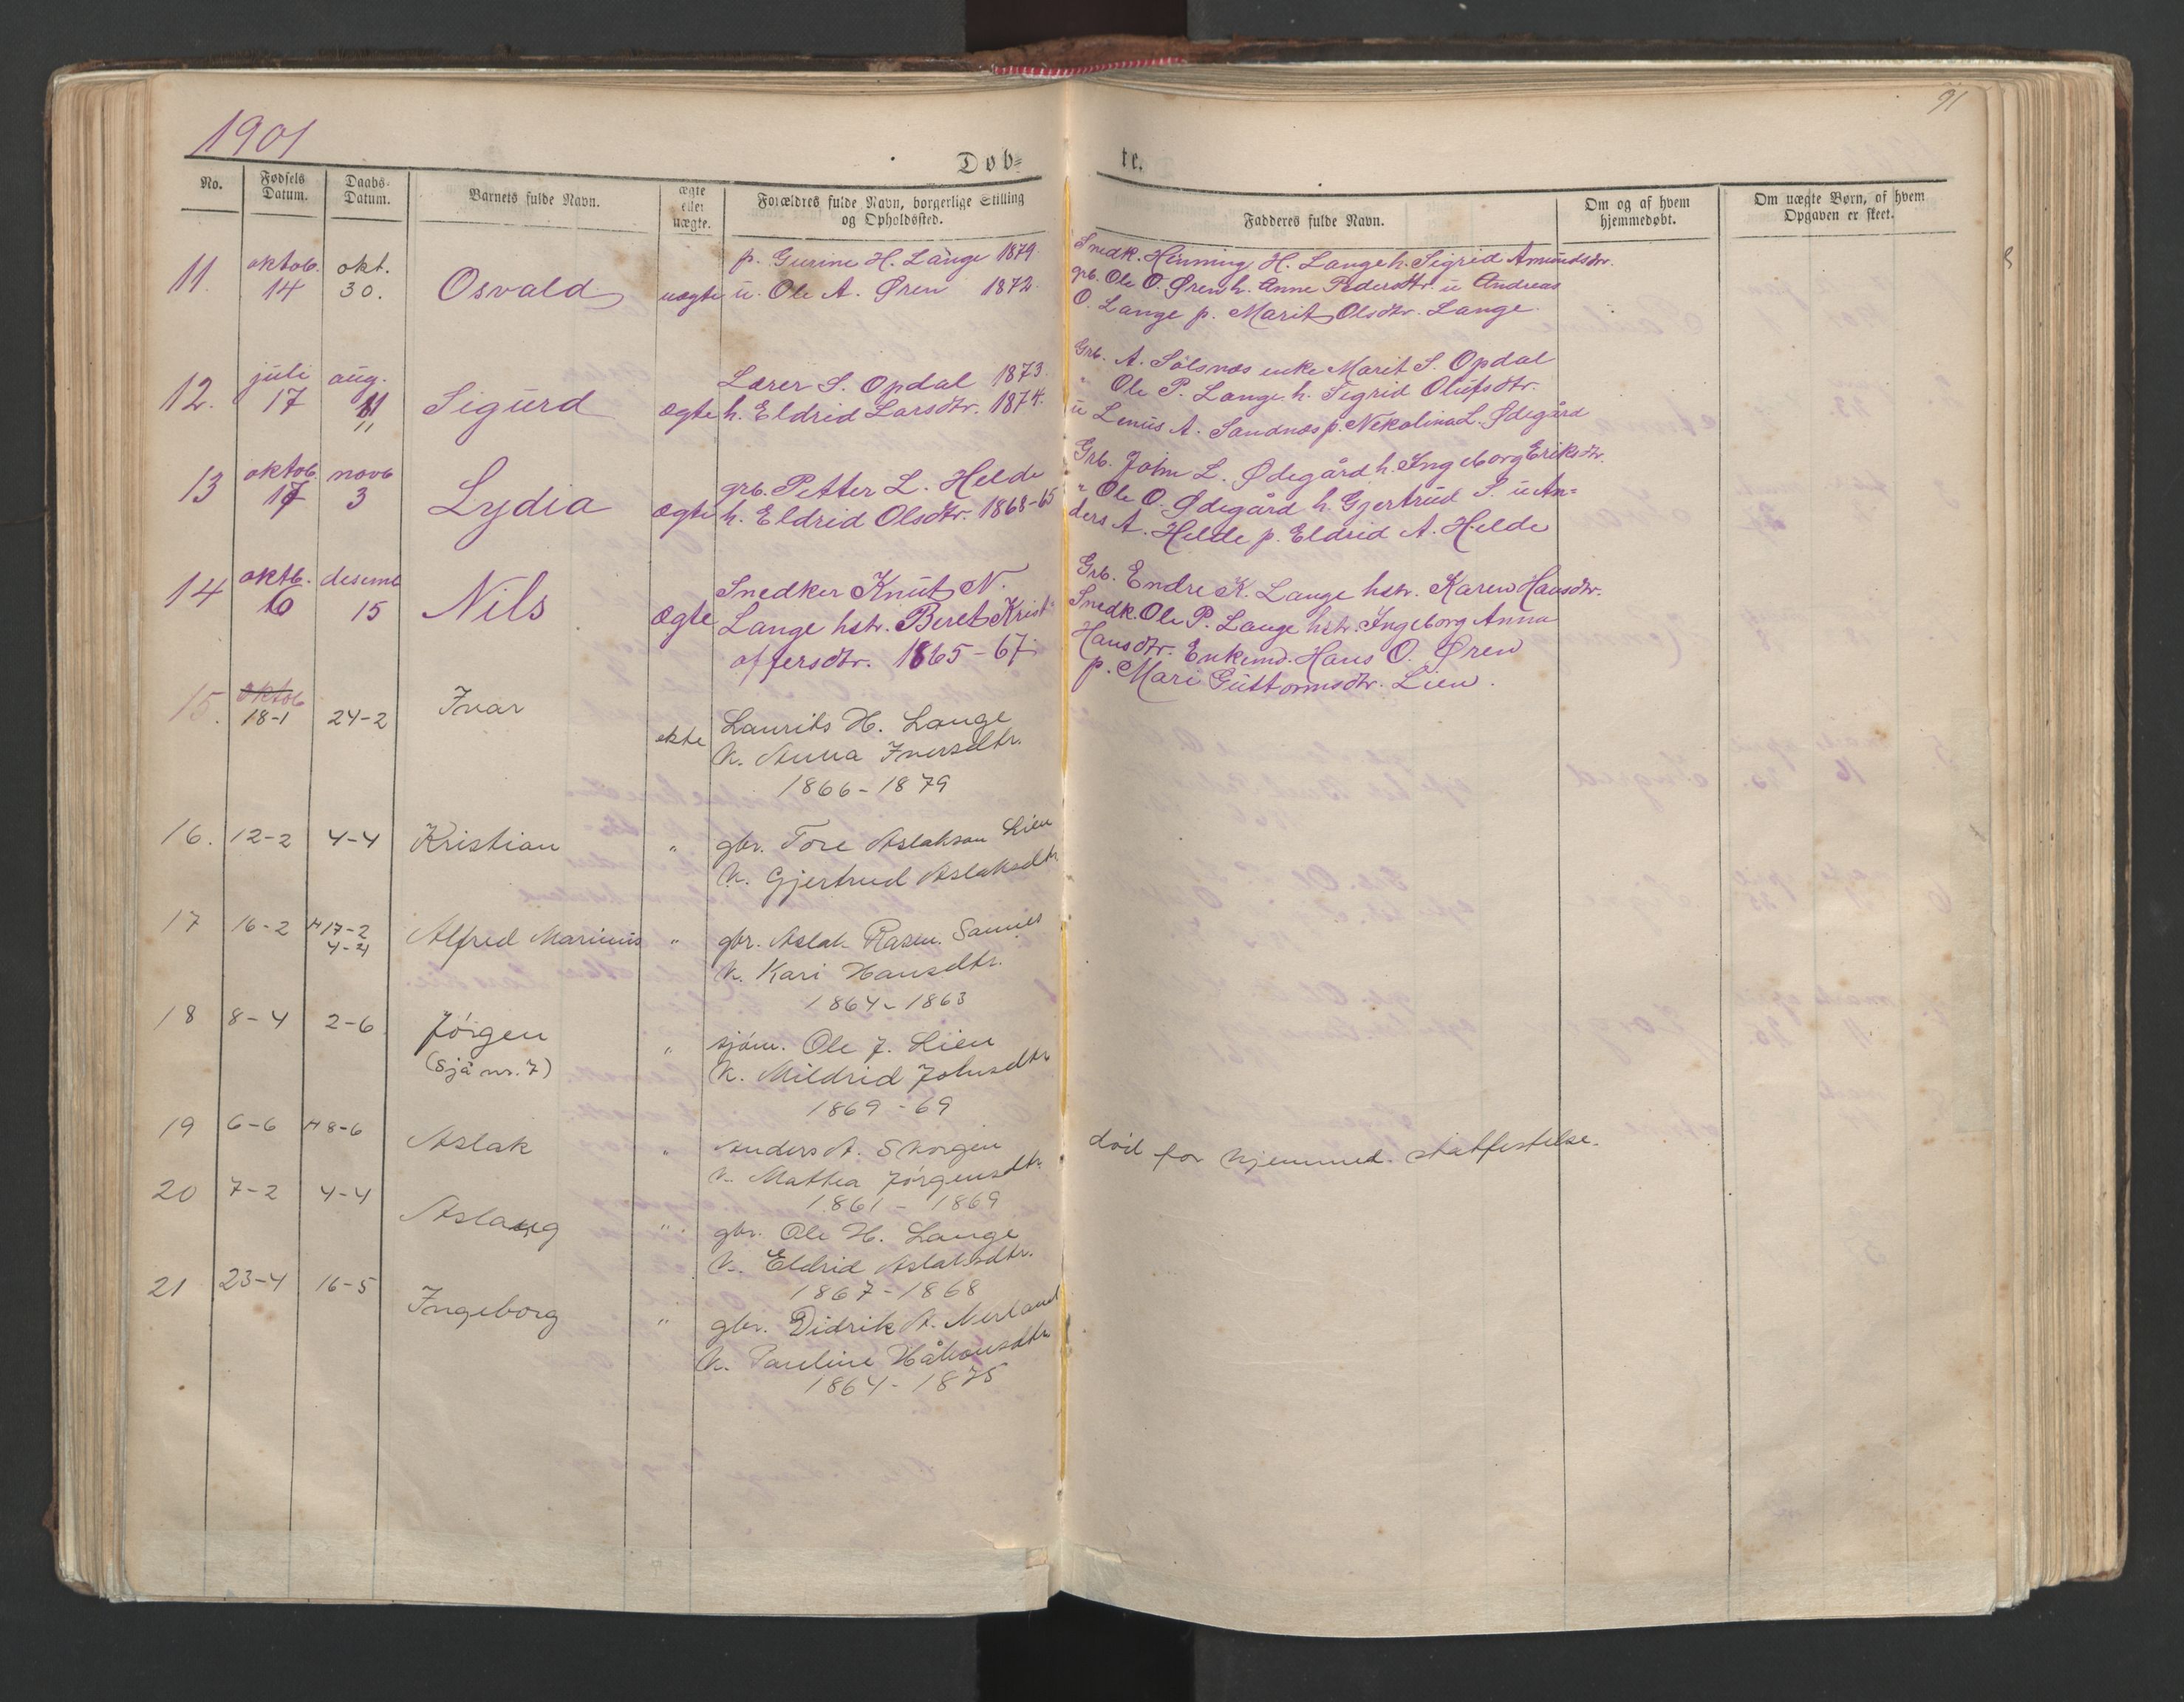 1901
91
Døb-
te.
No.
Fødsels Datum.
Daabs-Datum.
Barnets fulde Navn.
ægte eller uægte.
Forældres fulde Navn, borgerlige Stilling og Opholdssted.
Fadderes fulde Navn.
Om og af hvem hjemmedøbt.
Om uægte Børn, af hvem Opgaven er skeet.
11. oktob. 14 okt. 30. Osvald uægte
p. Gurine H. Lange 1879.
u. Ole A. Øren 1872.
Snedk. Henning H. Lange h. Sigrid Amundsdtr.
grb. Ole O. Øren h. Anne Pedersdtr. u Andreas
O. Lange p. Marit Olsdtr. Lange.
12. juli 17 aug. 11 11 Sigurd ægte
Lærer S. Opdal 1873.
h. Eldrid Larsdtr. 1874.
Grb. A. Sølsnæs enke Marit S. Opdal
" Ole P. Lange h. Sigrid Olufsdtr.
u Lenus A. Sandnæs p. Nekolina L. Ødegård
13 oktob. 17 novb 3 Lydia ægte
grb. Petter L. Helde
h. Eldrid Olsdtr. 1868-65
Grb. John L. Ødegård h. Ingeborg Eriksdtr.
" Ole O. Ødegård h. Gjertrud S. u An-
ders A. Helde p. Eldrid A. Helde
14 oktb. 6 desemb 15 Nils ægte
Snedker Knut N.
Lange hstr. Beret Krist-
offersdtr. 1865-67
Grb. Endre K. Lange hstr. Karen Hansdtr.
Snedk. Ole P. Lange hstr. Ingeborg Anna
Hansdtr. Enkemd. Hans O. Øren
p. Mari Guttormsdtr. Lien.
15. oktob 18-1 24-2 Ivar ekte
Laurits H. Lange
k. Anna Iversdtr.
1866-1879
16. 12-2 4-4 Kristian "
gbr. Tore Aslakson Lien
k. Gjertrud Aslaksdtr
17 16-2 H 17-2 4-4 Alfred Marinus "
gbr. Aslak Rasm. Sannes
k. Kari Hansdtr.
1864-1863
18 8-4 2-6 Jørgen "
(Sjå nr. 7)
sjøm. Ole J. Lien
k. Mildrid Johnsdtr
1869-69
19 6-6 H 8-6 Aslak "
Anders A. Skorgen
k. Mattea Jørgensdtr.
1861-1869
død før hjemmed. stadfestelse.
20 7-2 4-4 Aslaug "
gbr. Ole H. Lange
k. Eldrid Aslaksdtr.
1867-1868
21 23-4 16-5 Ingeborg "
gbr. Didrik A. Nerland
k. Pauline Håkonsdtr
1864-1875